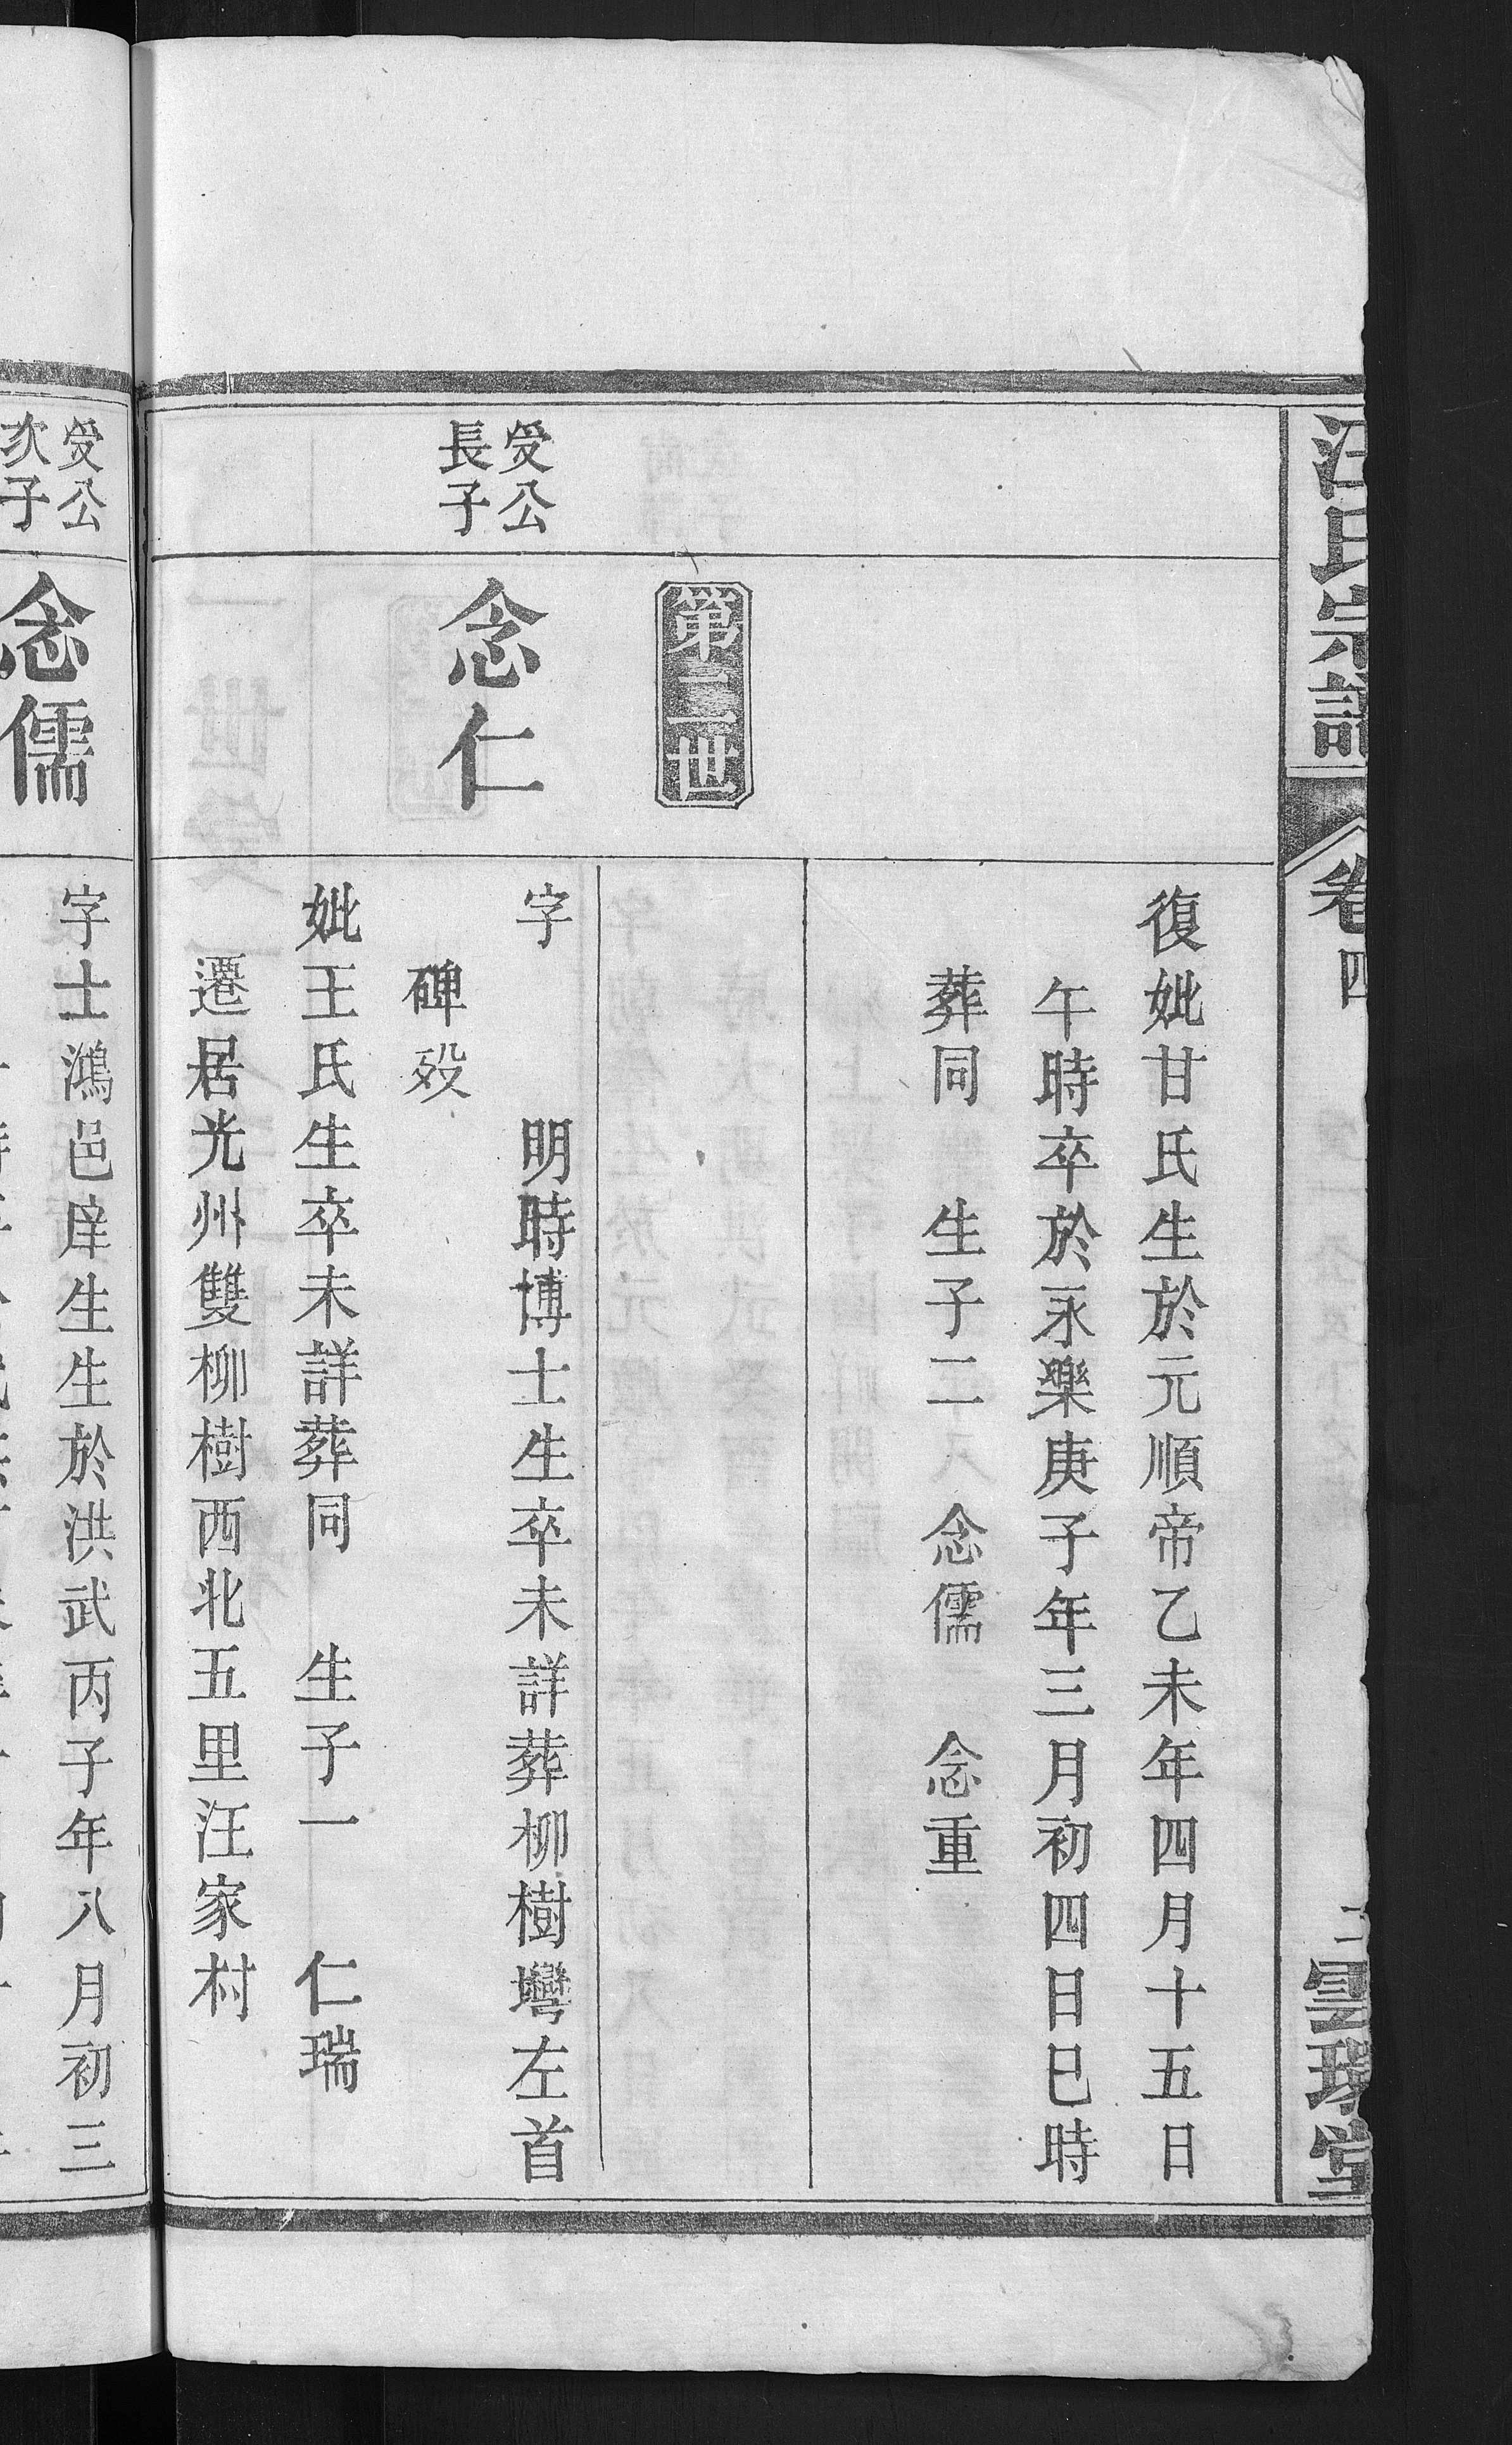 汪氏宗譜
卷四
二
復妣甘氏生於元順帝乙未年四月十五日
午時卒於永樂庚子年三月初四日巳時
葬同　生子二　念儒　念重
第二世
受公
長子
念仁
字　　明時博士生卒未詳葬柳樹灣左首
碑毀
妣王氏生卒未詳葬同　生子一　仁瑞
遷居光州雙柳樹西北五里汪家村
受公
次子
念儒
字士鴻邑庠生生於洪武丙子年八月初三